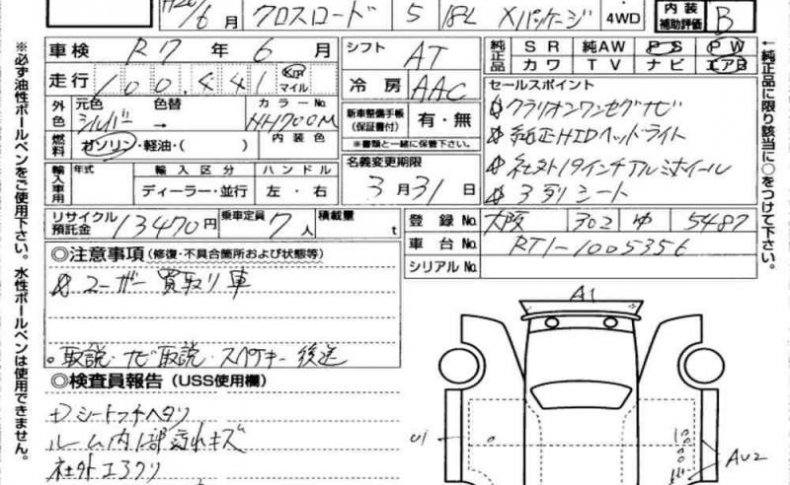 H20/6月 クロスロード 5 18L Xパッケージ 4WD 内装補助評価 B
車検 R7年6月 シフト AT 純正品 SR 純AW PS PW
カワ TV ナビ エアB
走行 100,441 km マイル 冷房 AAC
外色 元色 シルバー 色替 → カラーNo. NH700M
新車整備手帳(保証書付) 有・無
※書類と一緒に保管して下さい。
燃料 ガソリン・軽油・( ) 内装色
セールスポイント
クラリオンワンセグナビ
純正HIDヘッドライト
社外19インチアルミホイール
3列シート
輸入車用 年式 輸入区分 ハンドル
ディーラー・並行 左・右
名義変更期限
3月31日
リサイクル預託金 13470円 乗車定員 7人 積載量 t
登録No. 大阪 302 ゆ 5487
車台No. RT1-1005356
シリアルNo.
◎注意事項(修復・不具合箇所および状態等)
ユーザー買取り車
。取説・ナビ取説・スペアキー後送
◎検査員報告(USS使用欄)
シートコゲヘタリ
ルーム内1部汚れキズ
社外エアクリ
A1
U1
AU2
※必ず油性ボールペンをご使用下さい。水性ボールペンは使用できません。
←純正品に限り該当に○をつけて下さい。